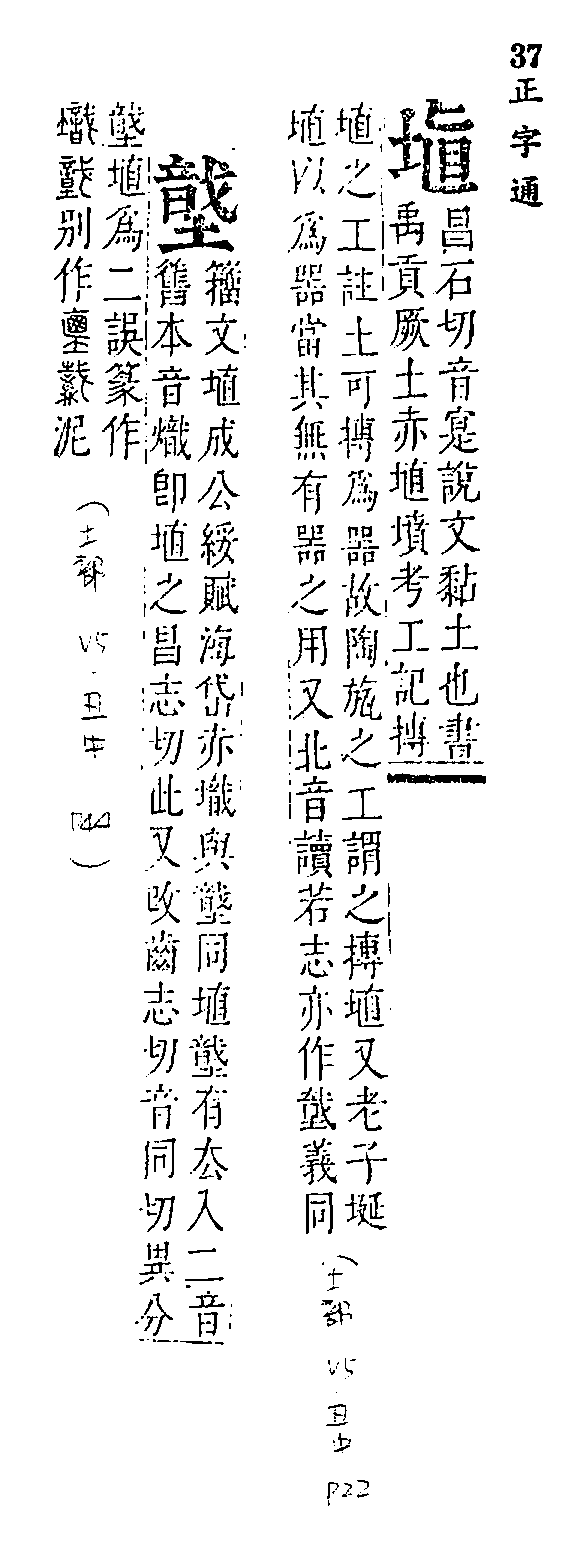 37 正字通
埴
昌石切音寔說文黏土也書
禹貢厥土赤埴墳考工記摶
埴之工註土可摶爲器故陶旊之工謂之摶埴又老子埏
埴以爲器當其無有器之用又北音讀若志亦作義同
(土部 V5 丑中 P22)
籀文埴成公綏賦海岱赤與同埴有厺入二音
舊本音熾卽埴之昌志切此又改齒志切音同切異分
埴爲二誤篆作
別作泥
(土部 V5 丑中 )